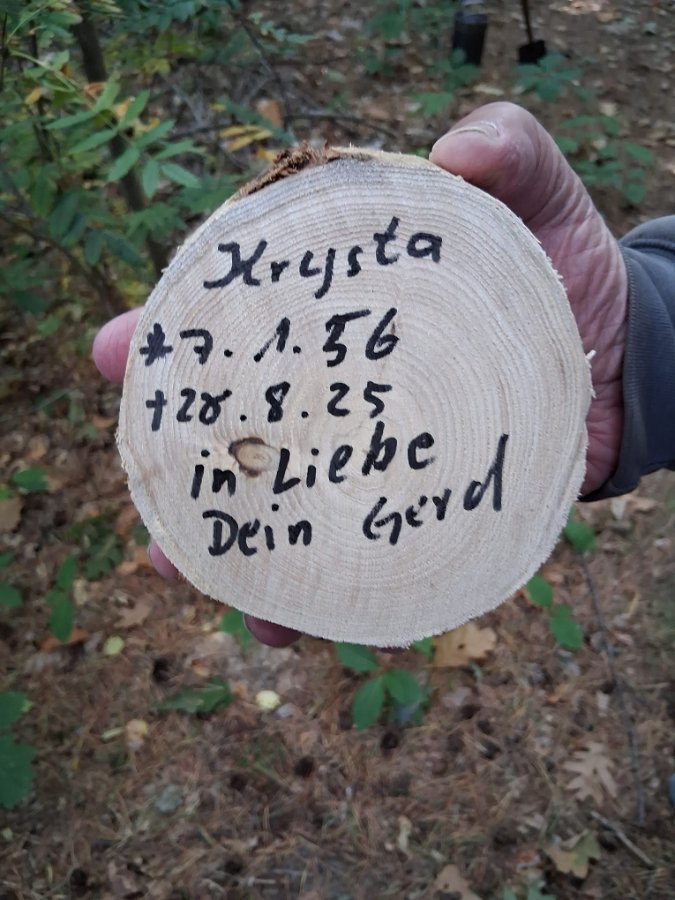 Krysta
* 7. 1. 56
† 28. 8. 25
in Liebe
Dein Gerd